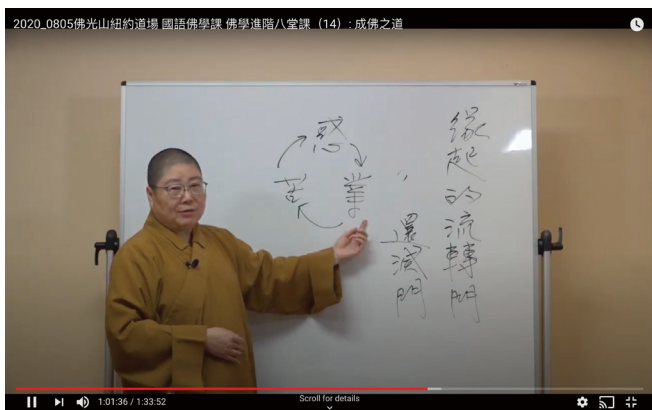 2020_0805佛光山紐約道場 國語佛學課 佛學進階八堂課（14）: 成佛之道
緣起的流轉門
還滅門
惑
業
苦
1:01:36 / 1:33:52
Scroll for details